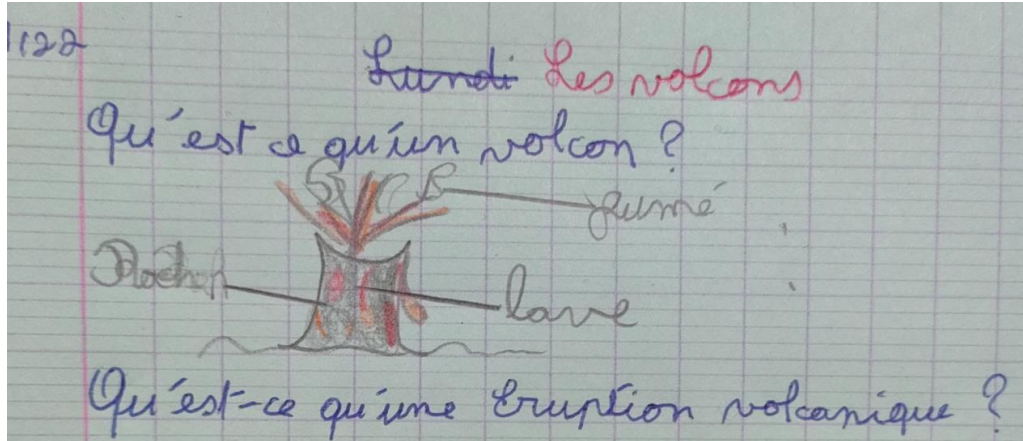 1122
Lundi Les volcans
Qu'est ce qu'un volcon ?
fumé
Rocher
lave
Qu'est-ce qu'une Eruption volcanique ?